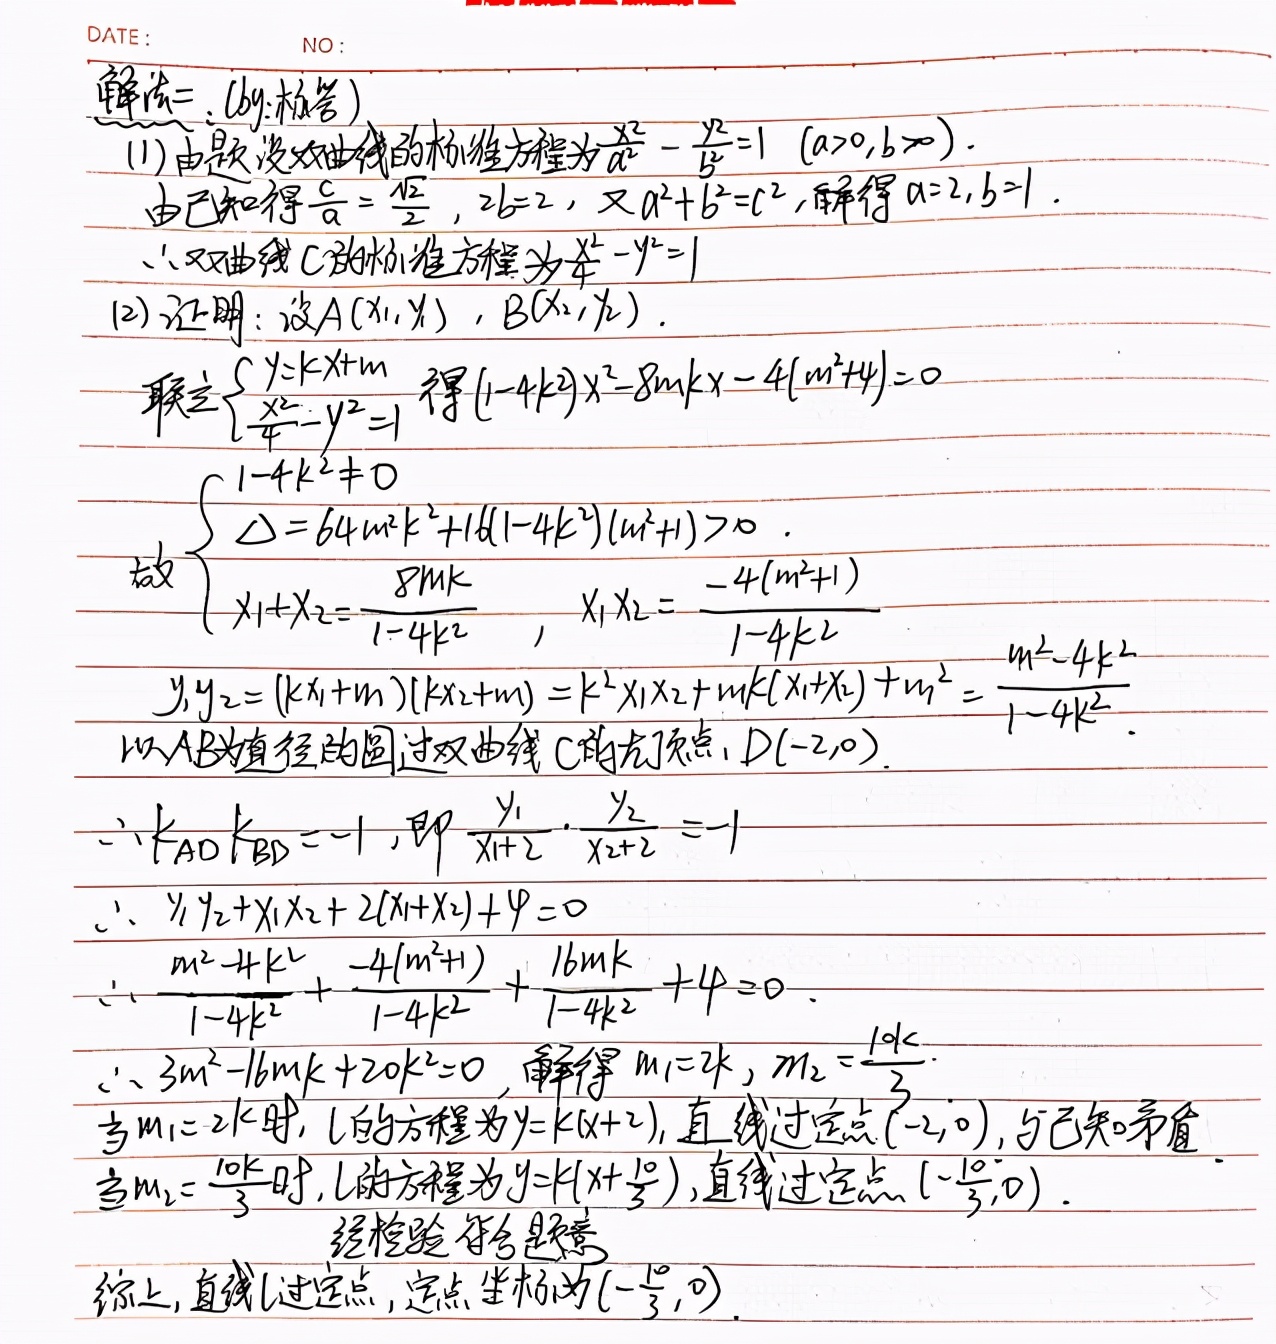 DATE: NO:
解法二:(by:标答)
(1)由题设双曲线的标准方程为x²/a² - y²/b²=1 (a>0,b>0).
由已知得c/a=√2/2, 2b=2, 又a²+b²=c²,解得a=2,b=1.
∴双曲线C的标准方程为x²/4-y²=1
(2)证明:设A(x₁,y₁), B(x₂,y₂).
联立{y=kx+m, x²/4-y²=1 得(1-4k²)x²-8mkx-4(m²+4)=0
故{1-4k²≠0
Δ=64m²k²+16(1-4k²)(m²+1)>0.
x₁+x₂=8mk/(1-4k²), x₁x₂=-4(m²+1)/(1-4k²)
y₁y₂=(kx₁+m)(kx₂+m)=k²x₁x₂+mk(x₁+x₂)+m²=(m²-4k²)/(1-4k²).
以AB为直径的圆过双曲线C的左顶点D(-2,0).
∴k_AD k_BD=-1,即y₁/(x₁+2)·y₂/(x₂+2)=-1
∴y₁y₂+x₁x₂+2(x₁+x₂)+4=0
∴(m²-4k²)/(1-4k²)+-4(m²+1)/(1-4k²)+16mk/(1-4k²)+4=0.
∴3m²-16mk+20k²=0,解得m₁=2k, m₂=10k/3.
当m₁=2k时,l的方程为y=k(x+2),直线过定点(-2,0),与已知矛盾.
当m₂=10k/3时,l的方程为y=k(x+10/3),直线过定点(-10/3,0).
经检验符合题意
综上,直线l过定点,定点坐标为(-10/3,0).